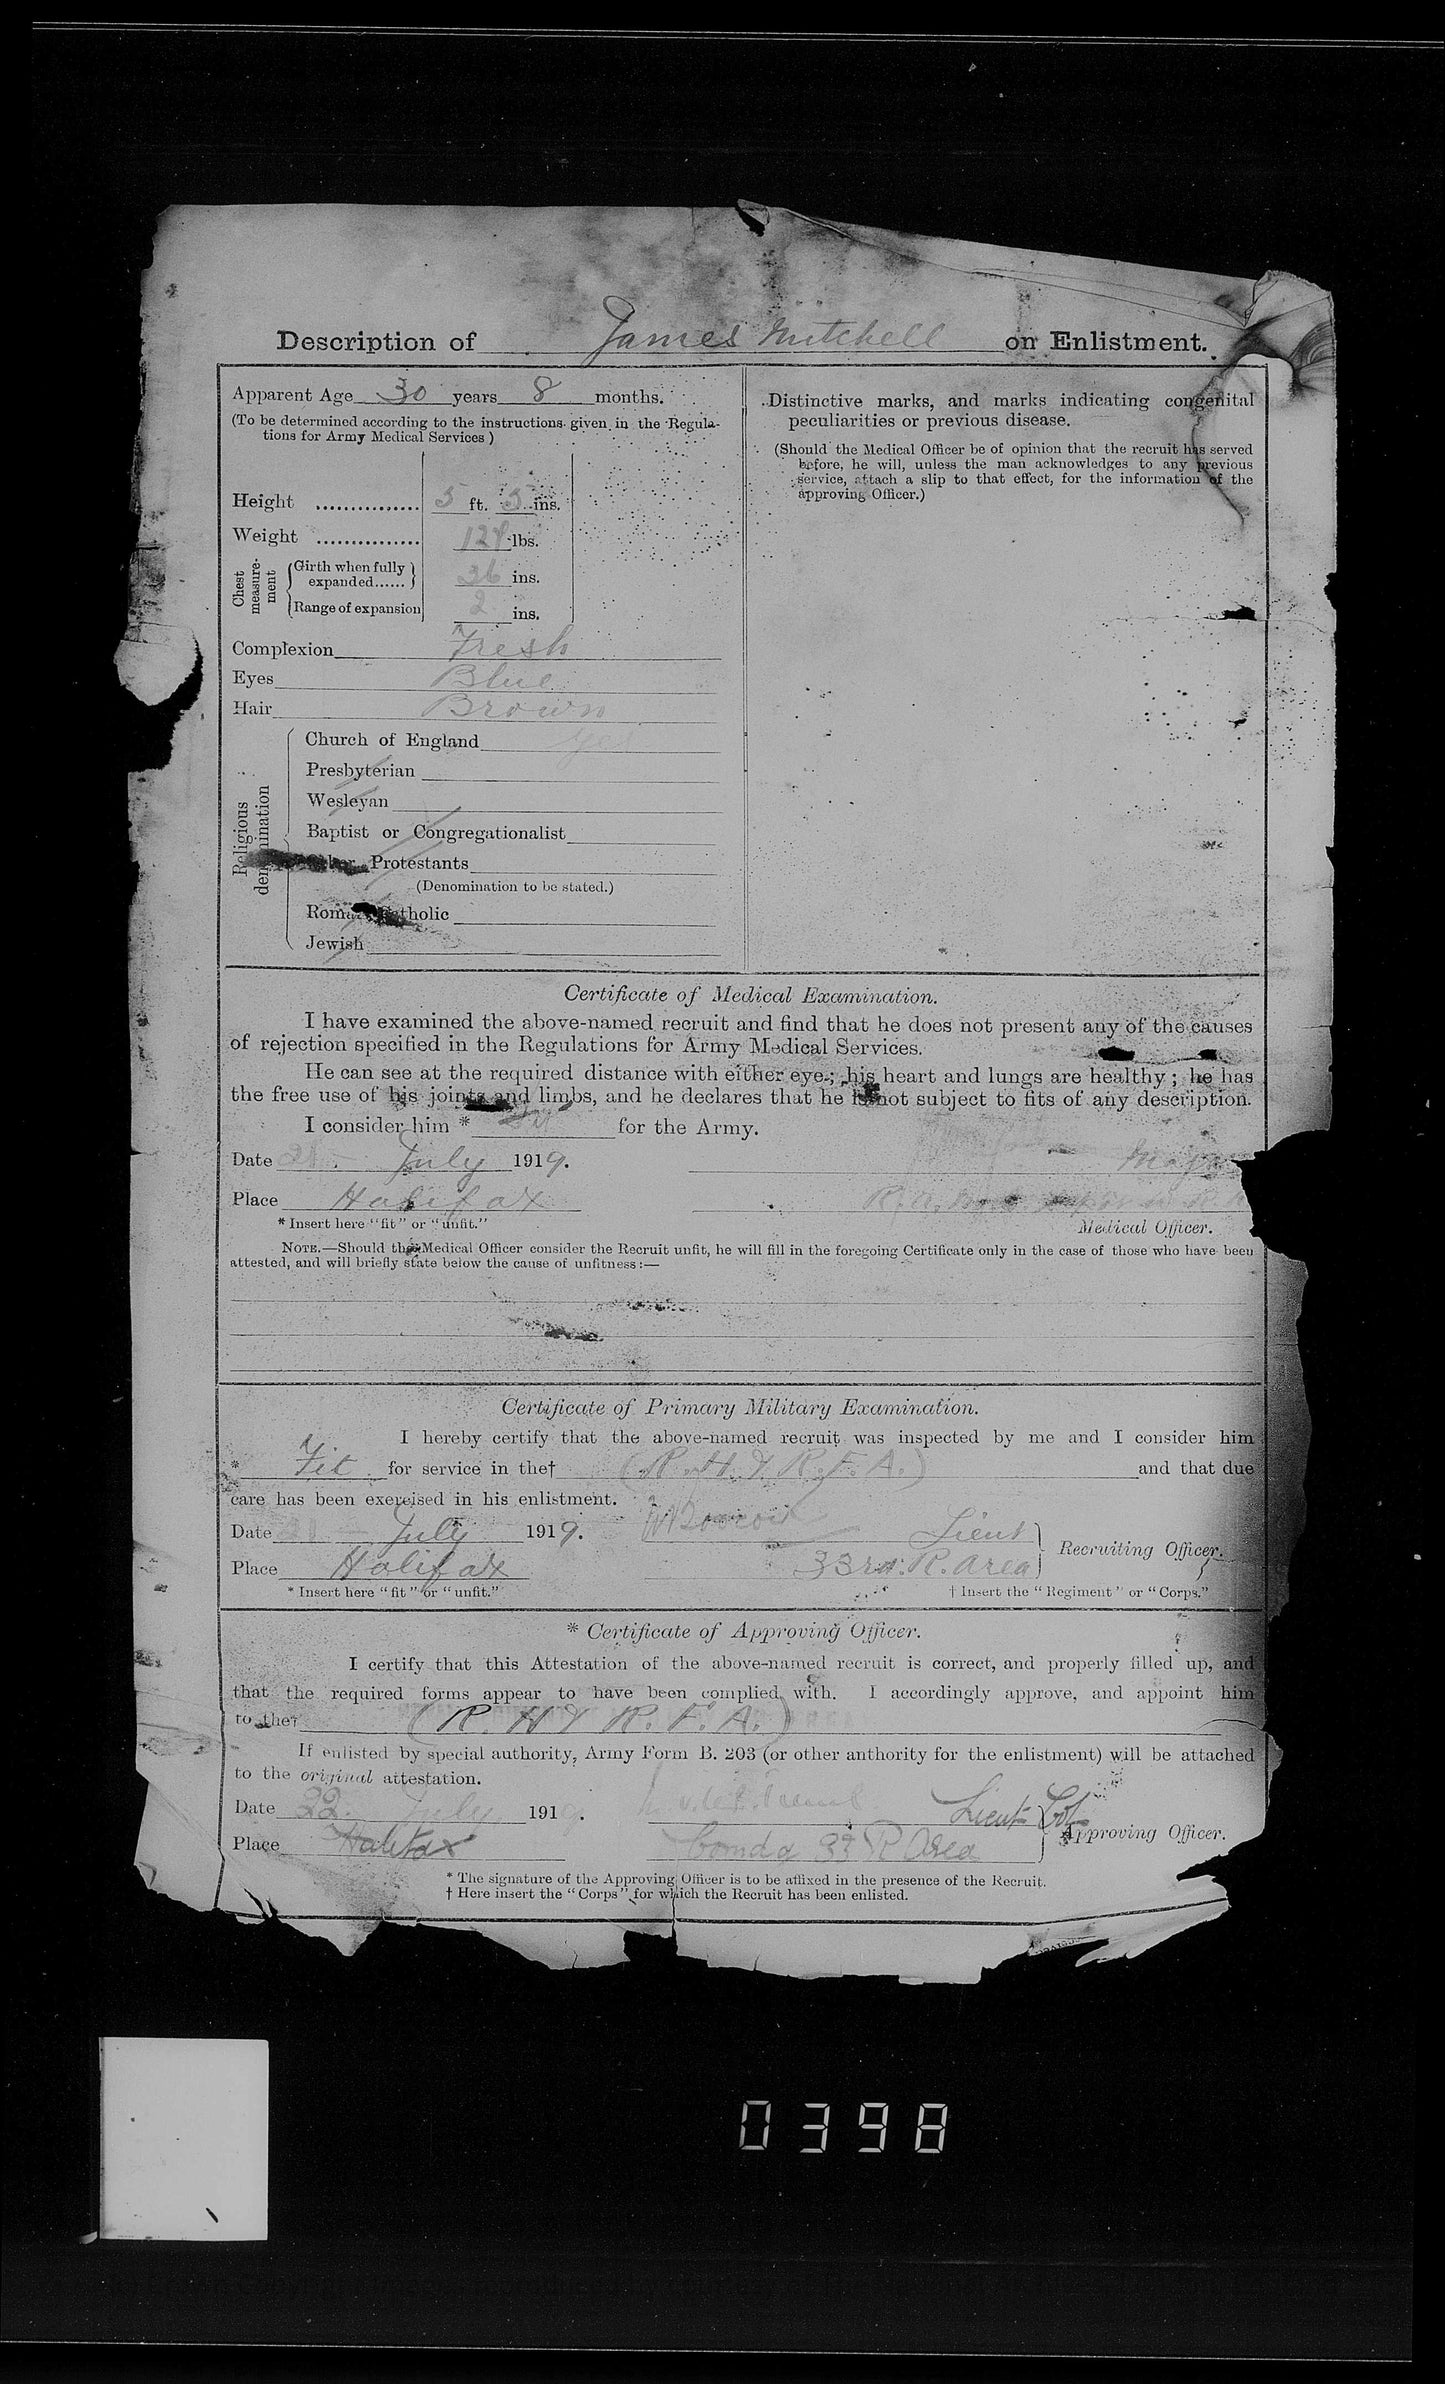 Description of James Mitchell on Enlistment.
Apparent Age 30 years 8 months.
(To be determined according to the instructions given in the Regula-
tions for Army Medical Services)
Height ............... 5 ft. 5 ins.
Weight ............... lbs.
Chest measure-ment
Girth when fully expanded...... 36 ins.
Range of expansion 2 ins.
Complexion Fresh
Eyes Blue
Hair Brown
Religious denomination
Church of England Yes
Presbyterian
Wesleyan
Baptist or Congregationalist
Other Protestants
(Denomination to be stated.)
Roman Catholic
Jewish
Distinctive marks, and marks indicating congenital
peculiarities or previous disease.
(Should the Medical Officer be of opinion that the recruit has served
before, he will, unless the man acknowledges to any previous
service, attach a slip to that effect, for the information of the
approving Officer.)
Certificate of Medical Examination.
I have examined the above-named recruit and find that he does not present any of the causes
of rejection specified in the Regulations for Army Medical Services.
He can see at the required distance with either eye; his heart and lungs are healthy; he has
the free use of his joints and limbs, and he declares that he is not subject to fits of any description.
I consider him * Fit for the Army.
Date 21 - July 1919. Major
Place Halifax R.A.M.C.
* Insert here "fit" or "unfit." Medical Officer.
NOTE.—Should the Medical Officer consider the Recruit unfit, he will fill in the foregoing Certificate only in the case of those who have been
attested, and will briefly state below the cause of unfitness:—
Certificate of Primary Military Examination.
I hereby certify that the above-named recruit was inspected by me and I consider him
* Fit for service in the† (R. H & R. F. A.) and that due
care has been exercised in his enlistment.
Date 21 - July 1919. Lieut
Recruiting Officer.
Place Halifax 33rd. R. Area
* Insert here "fit" or "unfit." † Insert the "Regiment" or "Corps."
* Certificate of Approving Officer.
I certify that this Attestation of the above-named recruit is correct, and properly filled up, and
that the required forms appear to have been complied with. I accordingly approve, and appoint him
to the† (R. H & R. F. A.)
If enlisted by special authority, Army Form B. 203 (or other authority for the enlistment) will be attached
to the original attestation.
Date 22. July 1919. Lieut Col
Approving Officer.
Place Halifax Comdg 33 R Area
* The signature of the Approving Officer is to be affixed in the presence of the Recruit.
† Here insert the "Corps" for which the Recruit has been enlisted.
0398